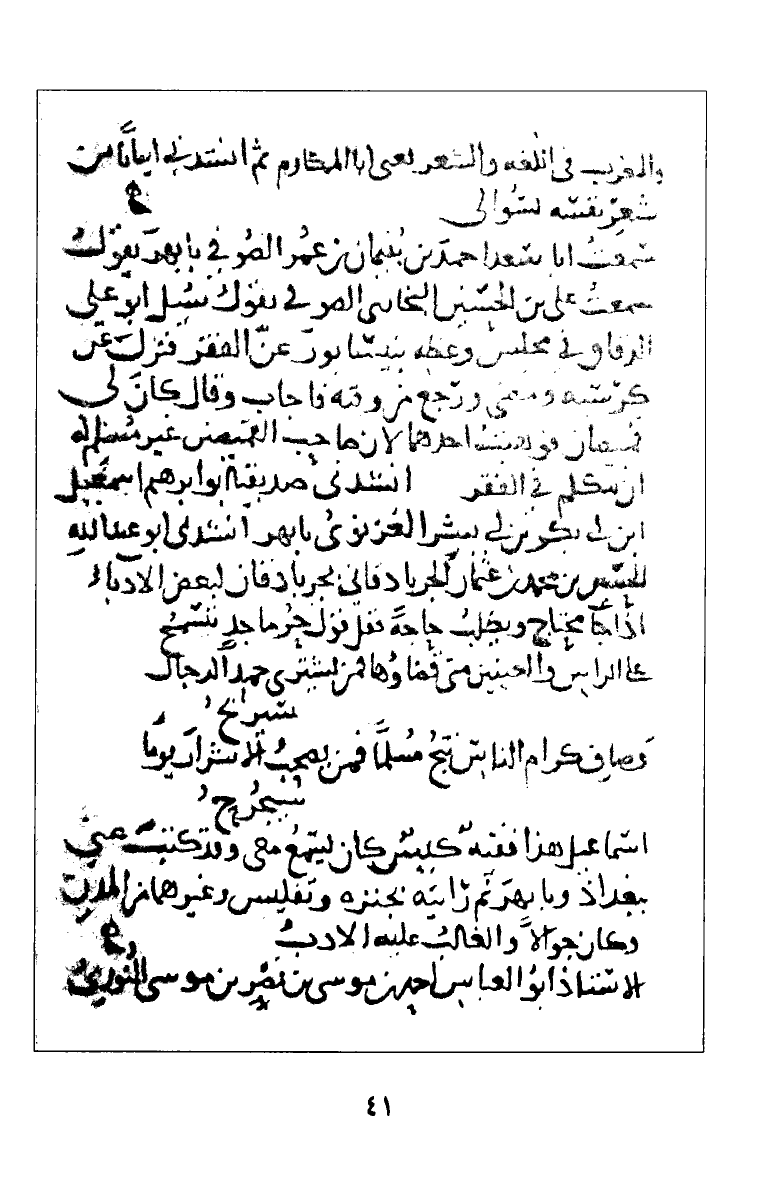 والمغرب في اللغه والشعر يعني ابا المكارم ثم انشدني ابياتا من
شعر نفسه لسوالى
سمعت ابا سعد احمد بن بنيمان بن عمر الصوفي بابهر يقول
سمعت علي بن الحسين الصوفي يقول سئل ابو علي
الدقاق في مجلس وعظه بنيسابور عن الفقر فنزل عن
كرسيه ومضى ورجع من وقته فاجاب وقال كان لي
قميصان فوهبت احدهما لان صاحب القميصين غير مسلم له
ان يتكلم في الفقر انشدني صديقنا ابو ابرهيم اسمعيل
ابن ابي بكر بن ابي بشر الغزنوي بابهر انشدني ابو عبد الله
الحسين بن محمد بن عثمان الجرباذقاني بجرباذقان لبعض الادباء
اذا جا محتاج ويطلب حاجة فقل قول حر ماجد
على الراس والعينين مني قضاوها فمن يشتري حمد الرجال
وصاف كرام الناس تنج مسلما فمن يصحب الاشرار يوما
اسماعيل هذا فقيه كيس كان يسمع معي وقد كتبت عني
ببغداذ وبابهر ثم رايته بجنزه وتفليس وغيرهما من المدن
وكان جوالا والغالب عليه الادب
الاستاذ ابو العباس احمد بن موسى بن نصر بن موسى
٤١